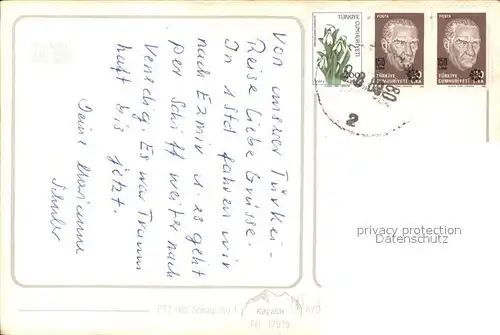 Von unsrer Türkei-
Reise liebe Grüsse.
In 1 Std fahren wir
nach Ezmir u. es geht
per Schiff weiter nach
Venedig. Es war Traum
haft bis jetzt.
Deine Marianne
Schuler
TÜRKİYE CUMHURİYETİ
200
POSTA
150 LİRA
TÜRKİYE CUMHURİYETİ
POSTA
150 LİRA
TÜRKİYE CUMHURİYETİ
2
privacy protection
Datenschutz
PTT Sokağı No 1
Kayalar
Tel 17915
AYD